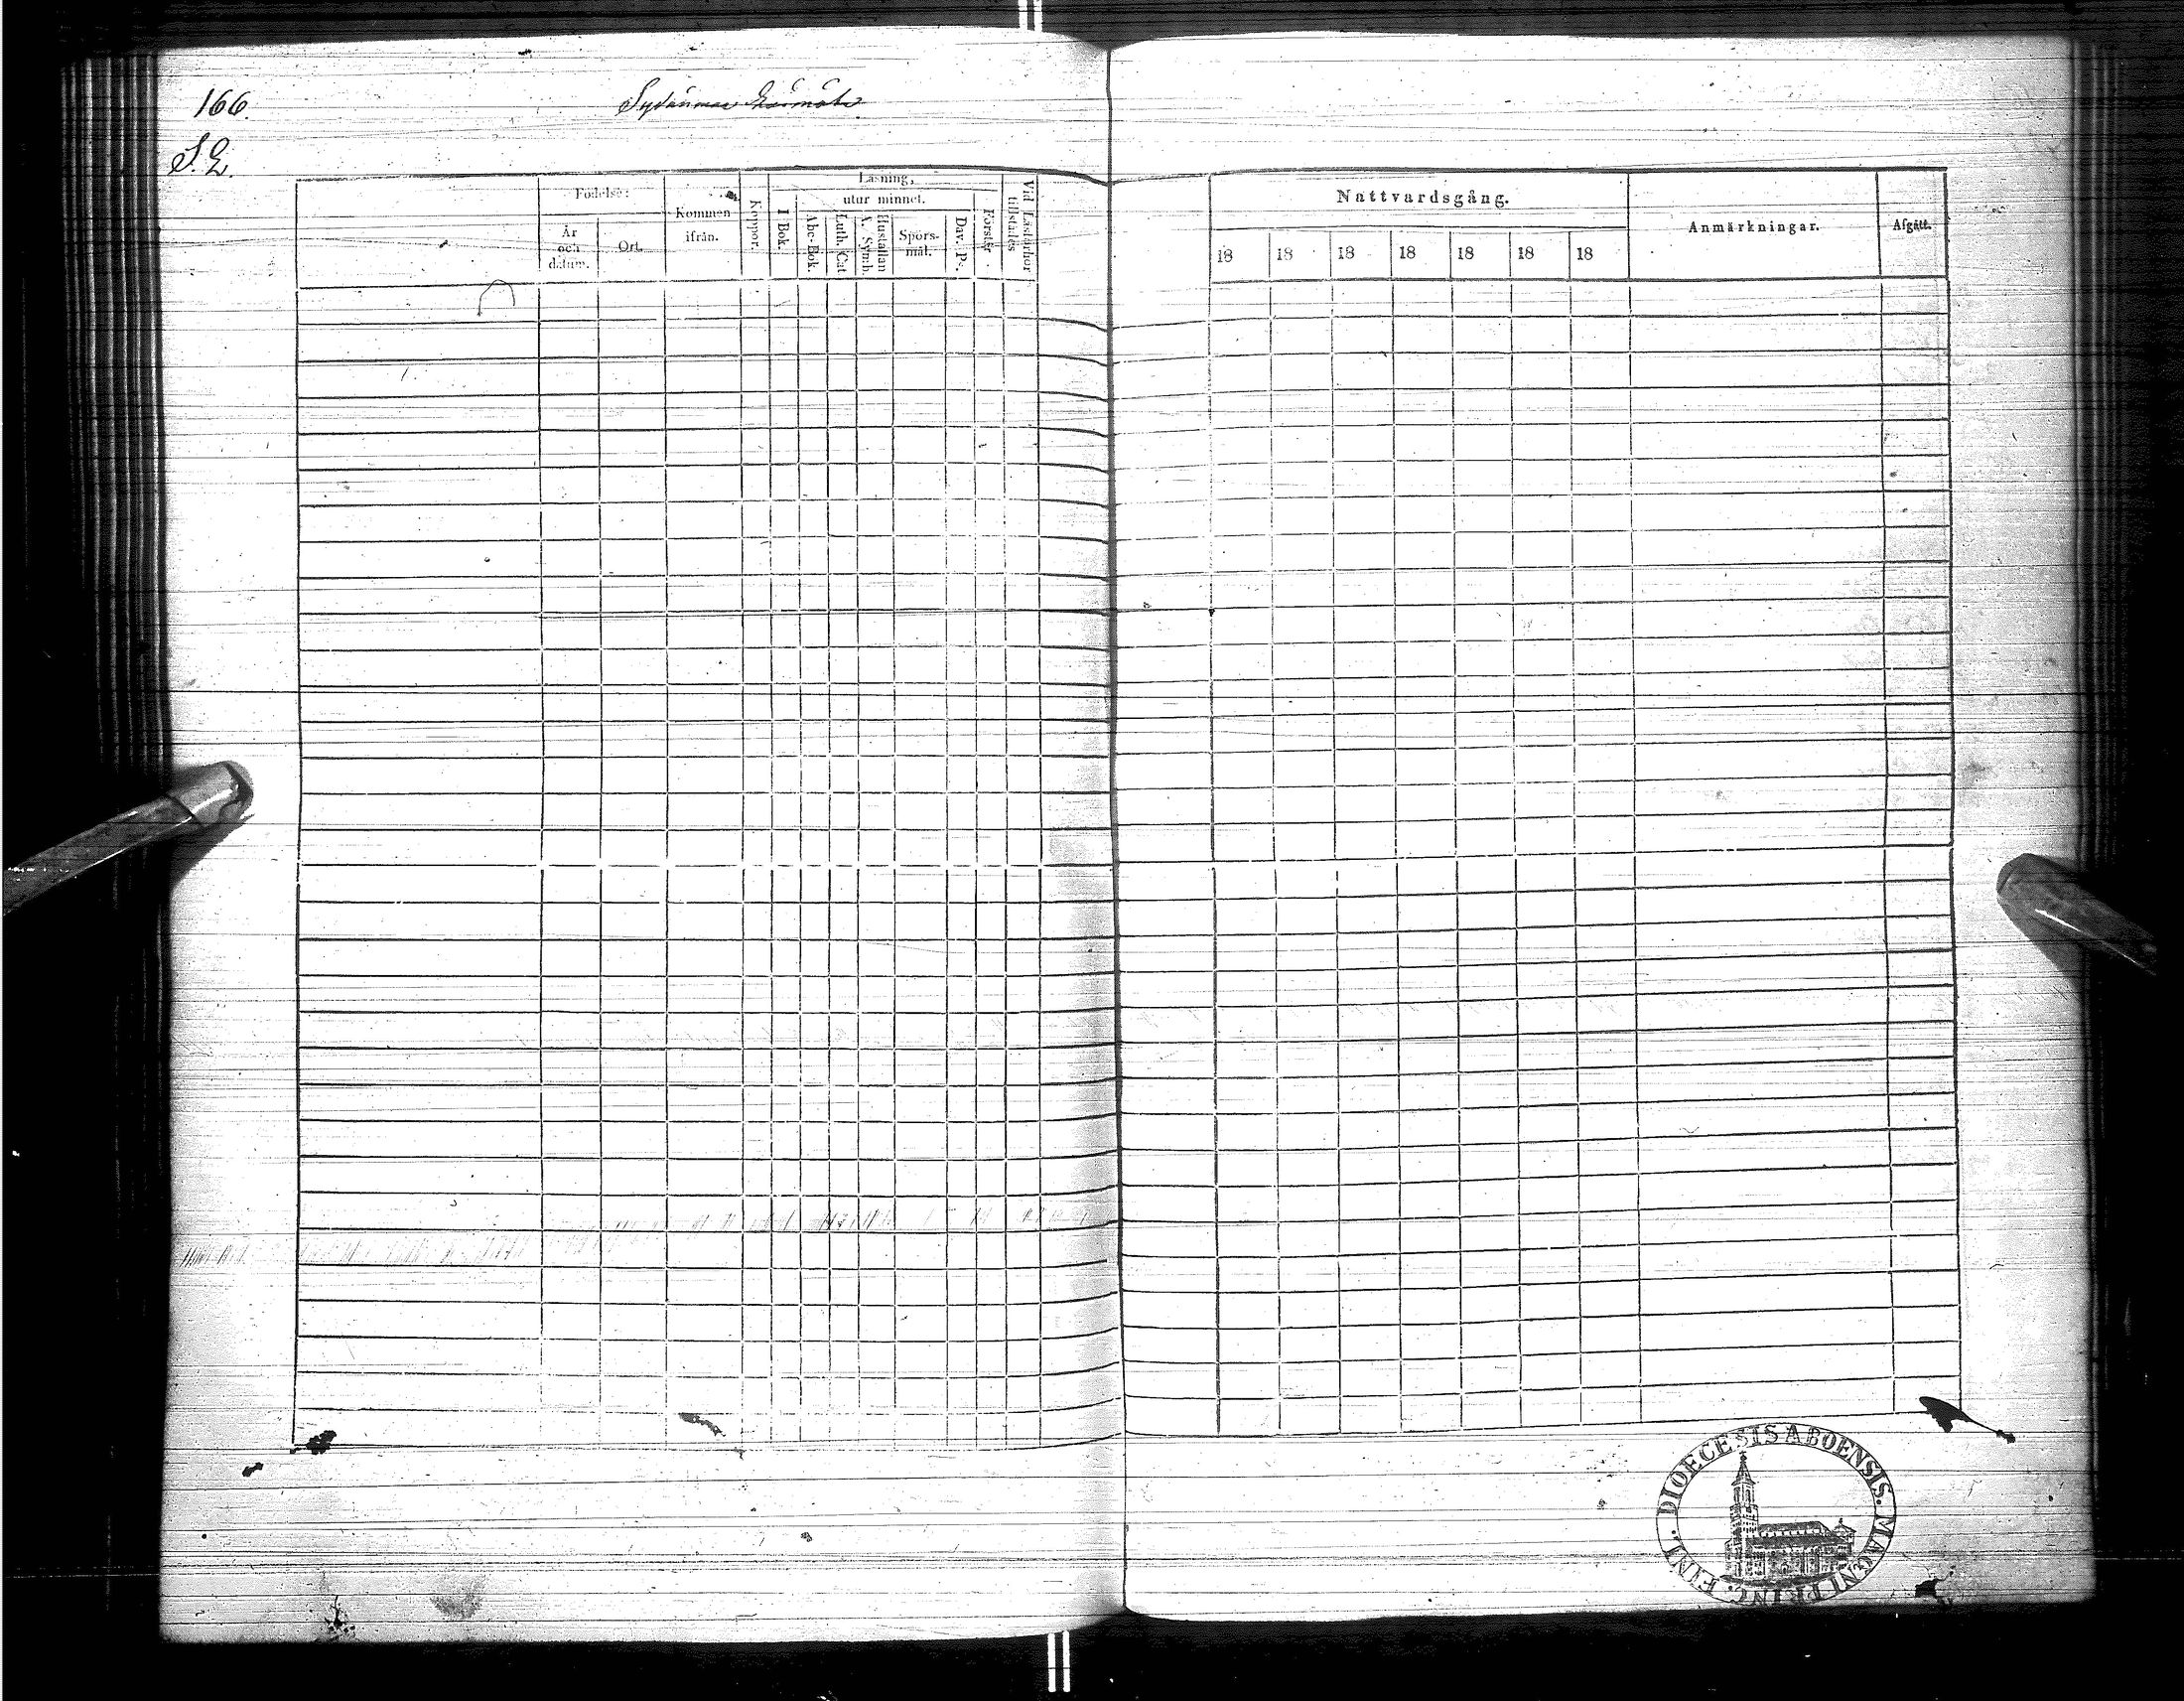 166.
S. L.
Födelse:
År och datum.
Ort.
Kommen ifrån.
Koppor.
Läsning,
I Bok.
utur minnet.
Abc-Bok.
Luth. Cat
Hustaflan A. Symb.
Spörsmål.
Dav. Ps.
Förstår.
Vid Läsförhör tillstädes
Nattvardsgång.
18 18 18 18 18 18 18
Anmärkningar.
Afgått.
DIOECESIS ABOENSIS. MAGNI PRINC. FINL.